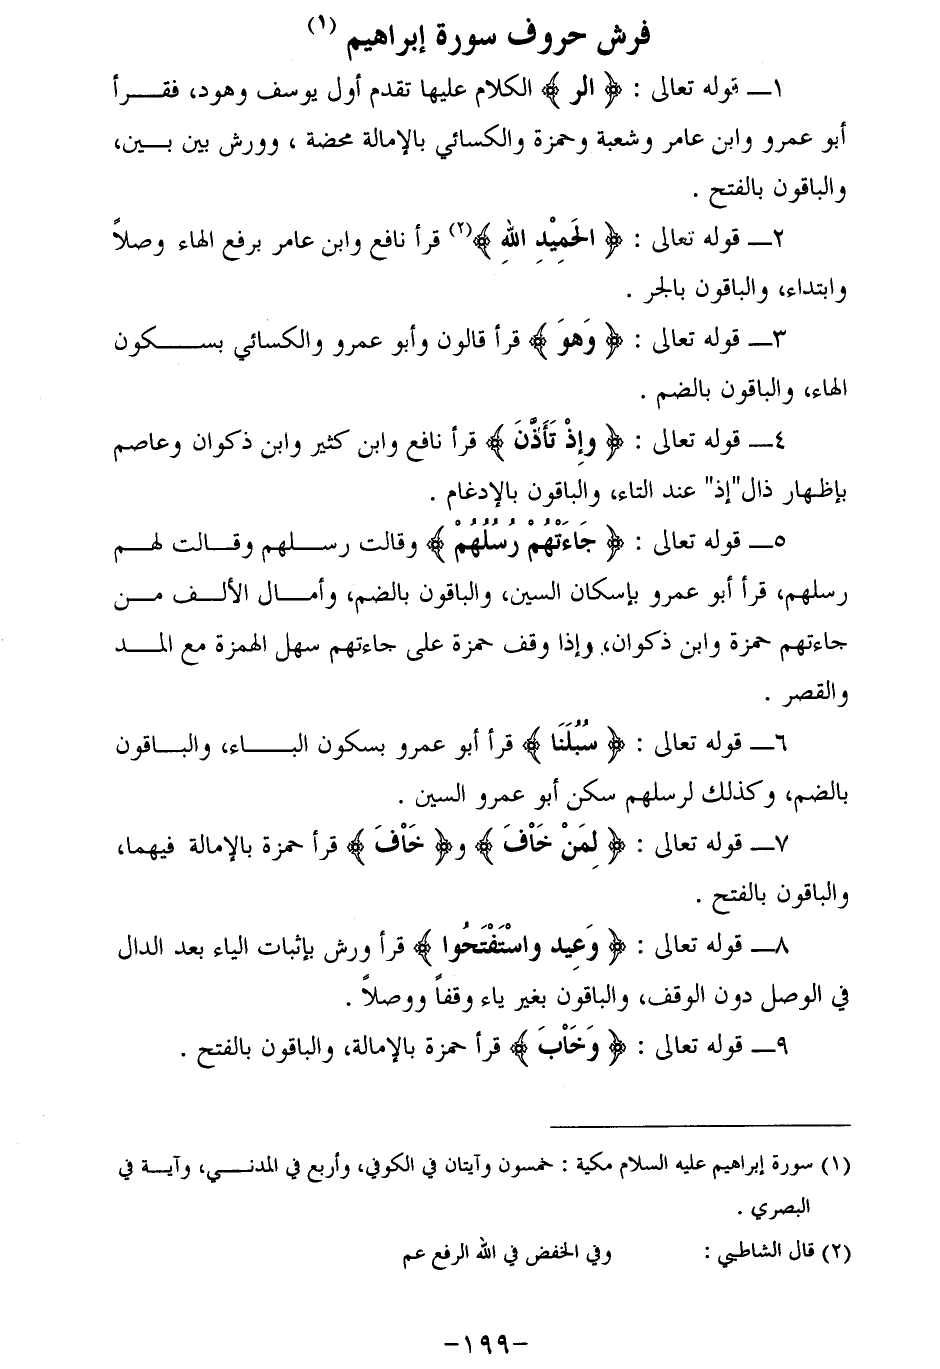 فرش حروف سورة إبراهيم (١)
١ــ قوله تعالى : ﴿ الر ﴾ الكلام عليها تقدم أول يوسف وهود، فقــرأ
أبو عمرو وابن عامر وشعبة وحمزة والكسائي بالإمالة محضة ، وورش بين بــين،
والباقون بالفتح .
٢ــ قوله تعالى : ﴿ الحَمِيْدِ اللهِ ﴾(٢) قرأ نافع وابن عامر برفع الهاء وصلاً
وابتداء، والباقون بالجر .
٣ــ قوله تعالى : ﴿ وَهوَ ﴾ قرأ قالون وأبو عمرو والكسائي بســكون
الهاء، والباقون بالضم .
٤ــ قوله تعالى : ﴿ وإِذْ تَأَذَّنَ ﴾ قرأ نافع وابن كثير وابن ذكوان وعاصم
بإظهار ذال"إذ" عند التاء، والباقون بالإدغام .
٥ــ قوله تعالى : ﴿ جَاءَتْهُمْ رُسُلُهُمْ ﴾ وقالت رســلهم وقــالت لهــم
رسلهم، قرأ أبو عمرو بإسكان السين، والباقون بالضم، وأمــال الألــف مــن
جاءتهم حمزة وابن ذكوان، وإذا وقف حمزة على جاءتهم سهل الهمزة مع المــد
والقصر .
٦ــ قوله تعالى : ﴿ سُبُلَنَا ﴾ قرأ أبو عمرو بسكون البــاء، والبــاقون
بالضم، وكذلك لرسلهم سكن أبو عمرو السين .
٧ــ قوله تعالى : ﴿ لِمَنْ خَاْفَ ﴾ و﴿ خَاْفَ ﴾ قرأ حمزة بالإمالة فيهما،
والباقون بالفتح .
٨ــ قوله تعالى : ﴿ وَعِيد واسْتَفْتَحُوا ﴾ قرأ ورش بإثبات الياء بعد الدال
في الوصل دون الوقف، والباقون بغير ياء وقفاً ووصلاً .
٩ــ قوله تعالى : ﴿ وَخَاْبَ ﴾ قرأ حمزة بالإمالة، والباقون بالفتح .
(١) سورة إبراهيم عليه السلام مكية : خمسون وآيتان في الكوفي، وأربع في المدنــي، وآيــة في
البصري .
(٢) قال الشاطبي : وفي الخفض في الله الرفع عم
-١٩٩-